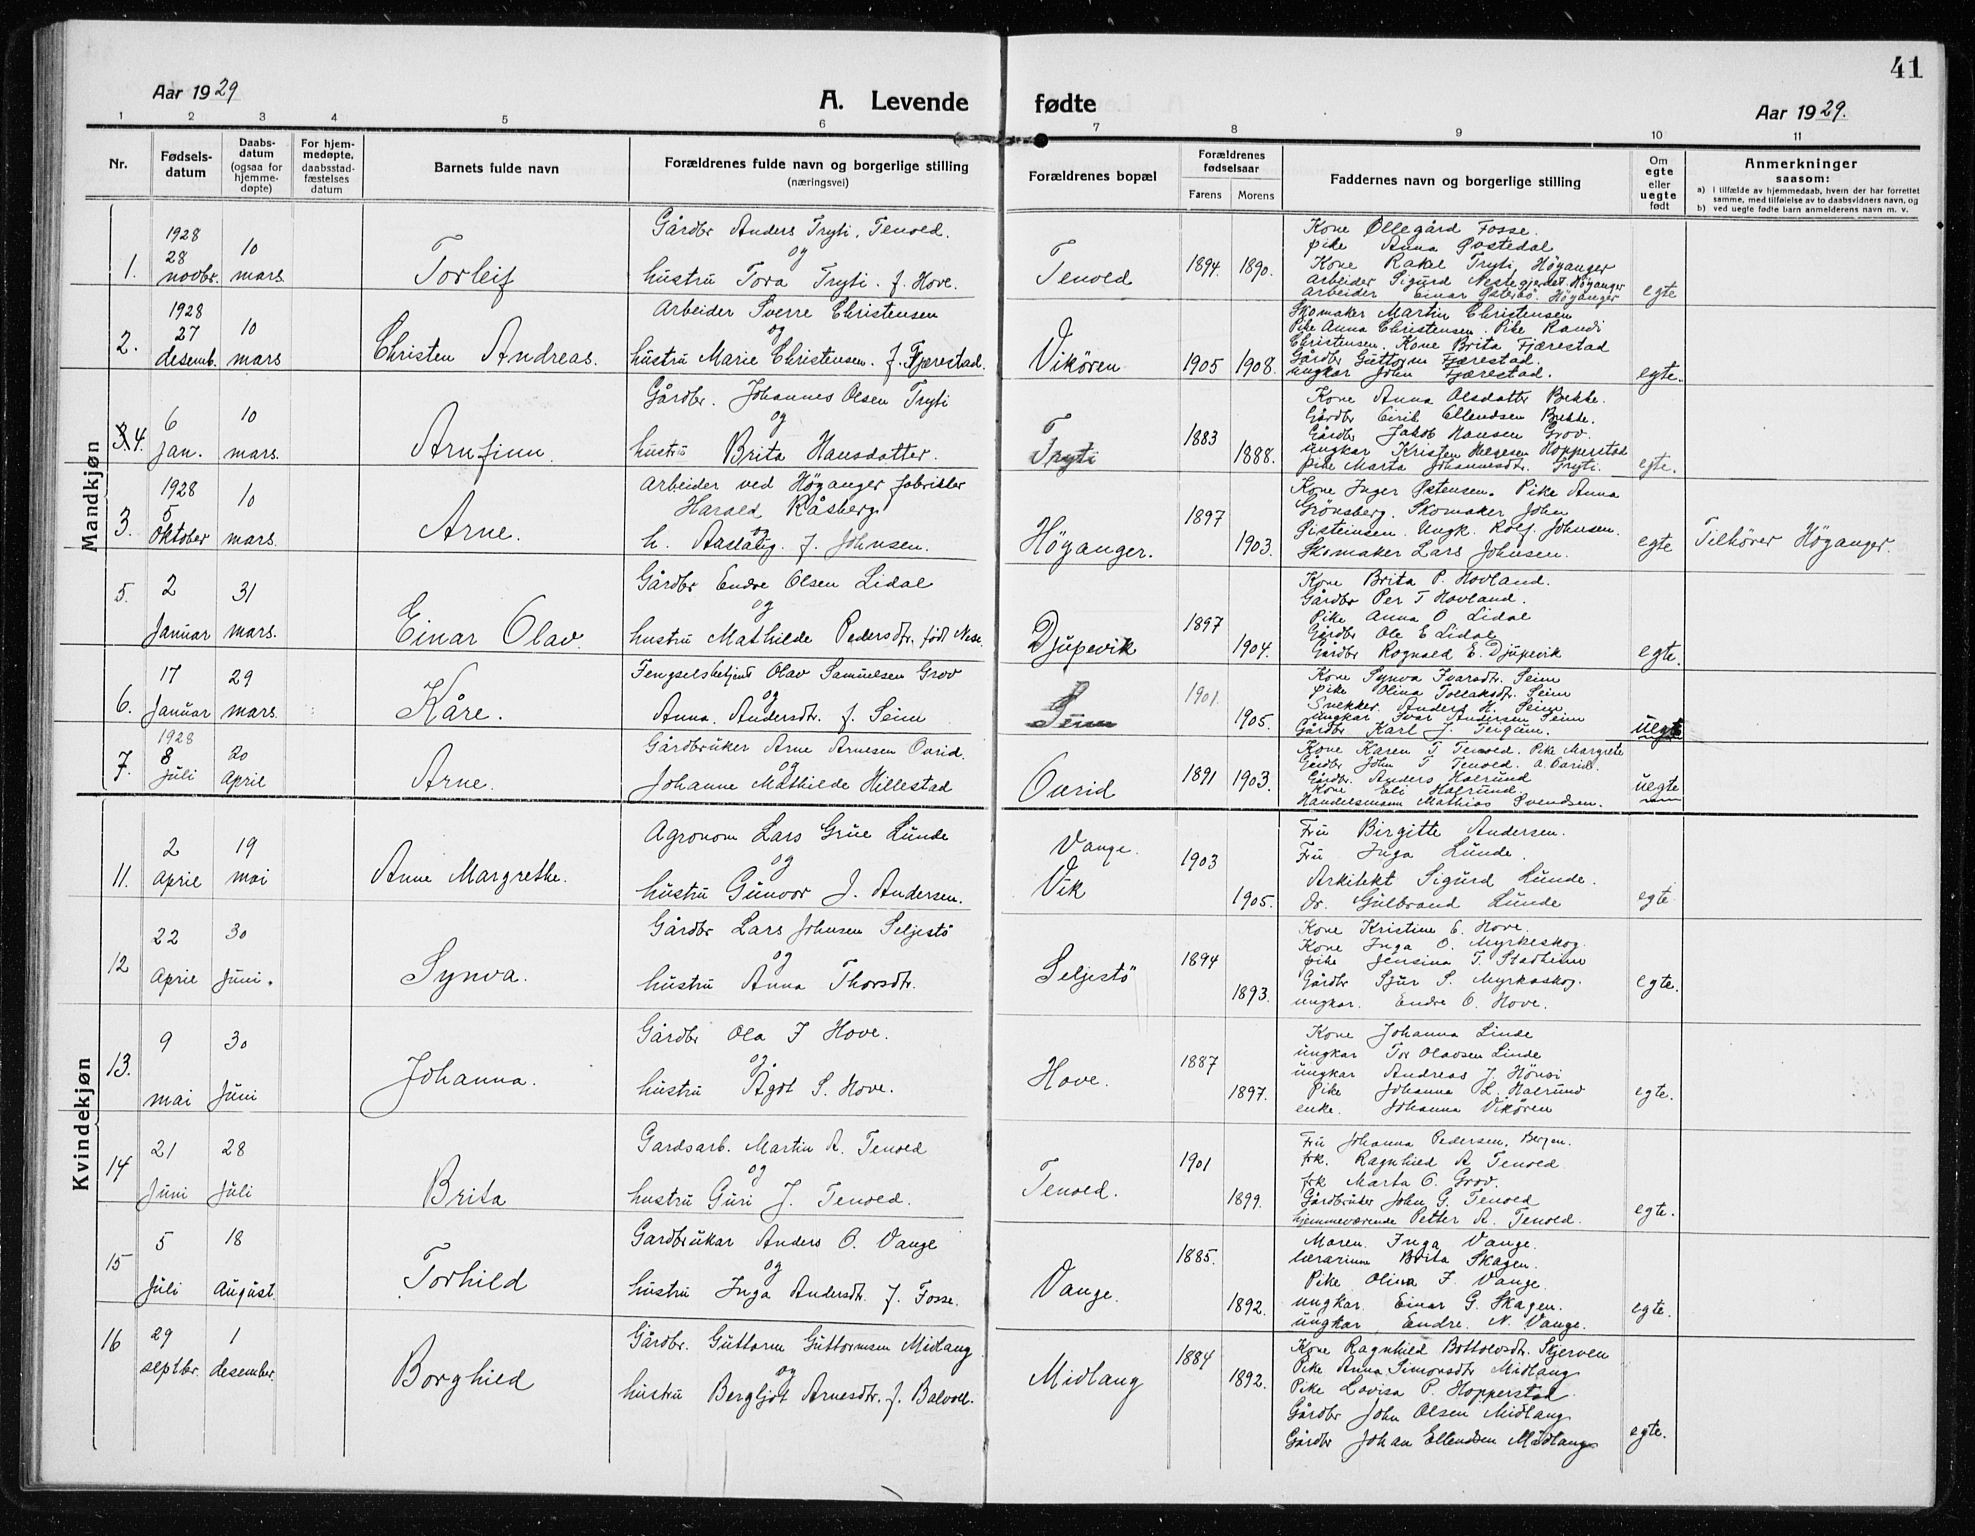 41
Aar 1929
A. Levende fødte
Aar 1929.
1 2 3 4 5 6 7 8 9 10 11
Nr.
Fødsels-
datum
Daabs-
datum
(ogsaa for
hjemme-
døpte)
For hjem-
medøpte,
daabsstad-
fæstelses
datum
Barnets fulde navn
Forældrenes fulde navn og borgerlige stilling
(næringsvei)
Forældrenes bopæl
Forældrenes
fødselsaar
Farens Morens
Faddernes navn og borgerlige stilling
Om
egte
eller
uegte
født
Anmerkninger
saasom:
a) I tilfælde av hjemmedaab, hvem der har forrettet
samme, med tilføielse av to daabsvidners navn, og
b) ved uegte fødte barn anmelderens navn m. v.
Mandkjøn
1.
1928
28
novbr.
10
mars
Torleif
Gårdbr Anders Tryti, Tenold.
og
hustru Tora Tryti f. Hove.
Tenold
1894 1890.
Kone Øllegård Fosse.
pike Anna Øvstedal
Kone Rakel Tryti Höyanger
Arbeider Sigurd Nestegjerdet Höyanger
Arbeider Einar Österbö. Höyanger
egte
2.
1928
27
desemb.
10
mars
Christen Andreas.
Arbeider Sverre Christensen
og
hustru Marie Christensen. f. Fjærestad.
Vikören
1905 1908.
Skomaker Martin Christensen
Pike Anna Christensen. Pike Randi
Christensen. Kone Brita Fjærestad
Gårdbr Guttorm Fjærestad.
ungkar John Fjærestad.
egte.
3. 4.
6
jan.
10
mars.
Arnfinn
Gårdbr. Johannes Olsen Tryti
og
hustru Brita Hansdatter.
Tryti
1883
1888.
Kone Anna Olsdatter Bekke.
Gårdbr Eirik Ellendsen Bekke.
Gårdbr Jakob Hansen Grov.
ungkar Kristen Helgesen Hopperstad
pike Marta Johannesdtr. Tryti.
egte.
3.
1928
5
oktober
10
mars.
Arne.
Arbeider ved Höyanger fabrikker
Harald Råsberg
og
h. Aaslaug. f. Johnsen.
Höyanger.
1897
1903.
Kone Inger Østensen. Pike Anna
Grönsberg. Skomaker John
Gisteinsen. Ungk. Rolf Johnsen.
Skomaker Lars Johnsen.
egte
Tilhører Höyanger.
5.
2
Januar
31
mars.
Einar Olav.
Gårdbr Endre Olsen Lidal
og
hustru Mathilde Pedersdtr. født Nese.
Djupevik
1897
1904.
Kone Brita P. Hovland.
Gårdbr Per T Hovland.
Pike Anna O Lidal
Gårdbr Ole E Lidal
Gårdbr Rognald E. Djupevik
egte.
6.
17
Januar
29
mars.
Kåre.
Fengselsbetjent Olav Samuelsen Grov
og
Anna. Andersdtr. f. Seim
Seim
1901.
1905.
Kone Synva Ivarsdtr. Seim
pike Olina Tollaksdtr. Seim
Snekker. Anders H. Seim.
ungkar Ivar Andersen Seim
Gårdbr Karl J. Teigum.
uegte
7.
1928
8
juli
20
april
Arne.
Gårdbruker Arne Arnesen Ovrid.
og
Johanne Mathilde Hillestad
Ovrid
1891 1903.
Kone Karen T Tenold. Pike Margrete
Gårdbr John T Tenold. A. Ovrid.
Gårdbr. Anders Halrund
Kone Eli Halrund
Handelsmann Mathias Svendsen.
uegte
Kvindekjøn
11.
2
april
19
mai
Anne Margrethe.
Agronom Lars Grue Lunde
og
hustru Gunvor J. Andersen.
Vange.
Vik
1903
1905.
Fru Birgitte Andersen.
Fru Inga Lunde.
Arkitekt Sigurd Lunde.
Dr. Gulbrand Lunde
egte
12
22
april
30
Juni.
Synva.
Gårdbr Lars Johnsen Seljestö
og
hustru Anna Thorsdtr.
Seljestö
1894
1893.
Kone Kristine E. Hove.
Kone Inga O. Myrkeskog.
pike Jensina T. Stadheim
Gårdbr Sjur S. Myrkaskog.
ungkar. Endre O. Hove.
egte.
13.
9
mai
30
Juni
Johanna.
Gårdbr Ola I Hove.
og.
hustru Agot S. Hove.
Hove.
1887
1897.
Kone Johanna Linde
ungkar Tor Olavsen Linde
ungkar Andreas J Hönsi
Pike Johanna L. Halrund
enke. Johanna Vikören
egte.
14
21
Juni
28
Juli
Brita
Gardsarb. Martin A. Tenold
og
hustru Guri J. Tenold.
Tenold.
1901
1899.
Fru Johanna Pedersen, Bergen.
frk. Ragnhild A Tenold.
frk Marta O. Grov.
Gårdbruker John G. Tenold
hjemmeværende Petter A. Tenold.
egte.
15
5
Juli
18
August.
Torhild
Gardbrukar Anders O. Vange
og
hustru Inga Andersdtr. f. Fosse.
Vange.
1885.
1892.
Moren. Inga Vange.
lærarinne Brita Skagen.
Pike Olina I. Vange.
ungkar. Einar G. Skagen.
ungkar. Endre. N. Vange.
egte.
16
29
septbr.
1
desember.
Borghild
Gårdbr. Guttorm Guttormsen Midlang
og
hustru Bergljot Arnesdtr. f. Balvoll.
Midlang
1884
1892.
Kone Ragnhild Bottolvsdtr. Skjerven
Pike Anna Simonsdtr Midlang
Pike Lovisa P. Hopperstad
Gårdbr John Olsen Midlang
Gårdbr Johan Ellendsen Midlang
egte.